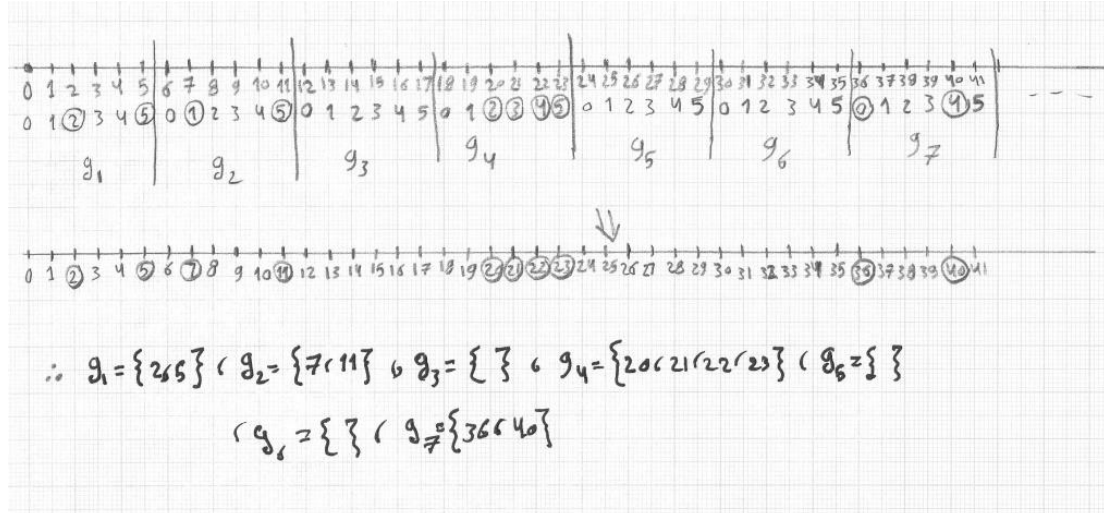 0 1 2 3 4 5 6 7 8 9 10 11 12 13 14 15 16 17 18 19 20 21 22 23 24 25 26 27 28 29 30 31 32 33 34 35 36 37 38 39 40 41
0 1 2 3 4 5 0 1 2 3 4 5 0 1 2 3 4 5 0 1 2 3 4 5 0 1 2 3 4 5 0 1 2 3 4 5 0 1 2 3 4 5 - - -
g₁ g₂ g₃ g₄ g₅ g₆ g₇
⇓
0 1 2 3 4 5 6 7 8 9 10 11 12 13 14 15 16 17 18 19 20 21 22 23 24 25 26 27 28 29 30 31 32 33 34 35 36 37 38 39 40 41
∴ g₁ = {2،5} ، g₂ = {7،11} ، g₃ = { } ، g₄ = {20،21،22،23} ، g₅ = { }
، g₆ = { } ، g₇ = {36،40}